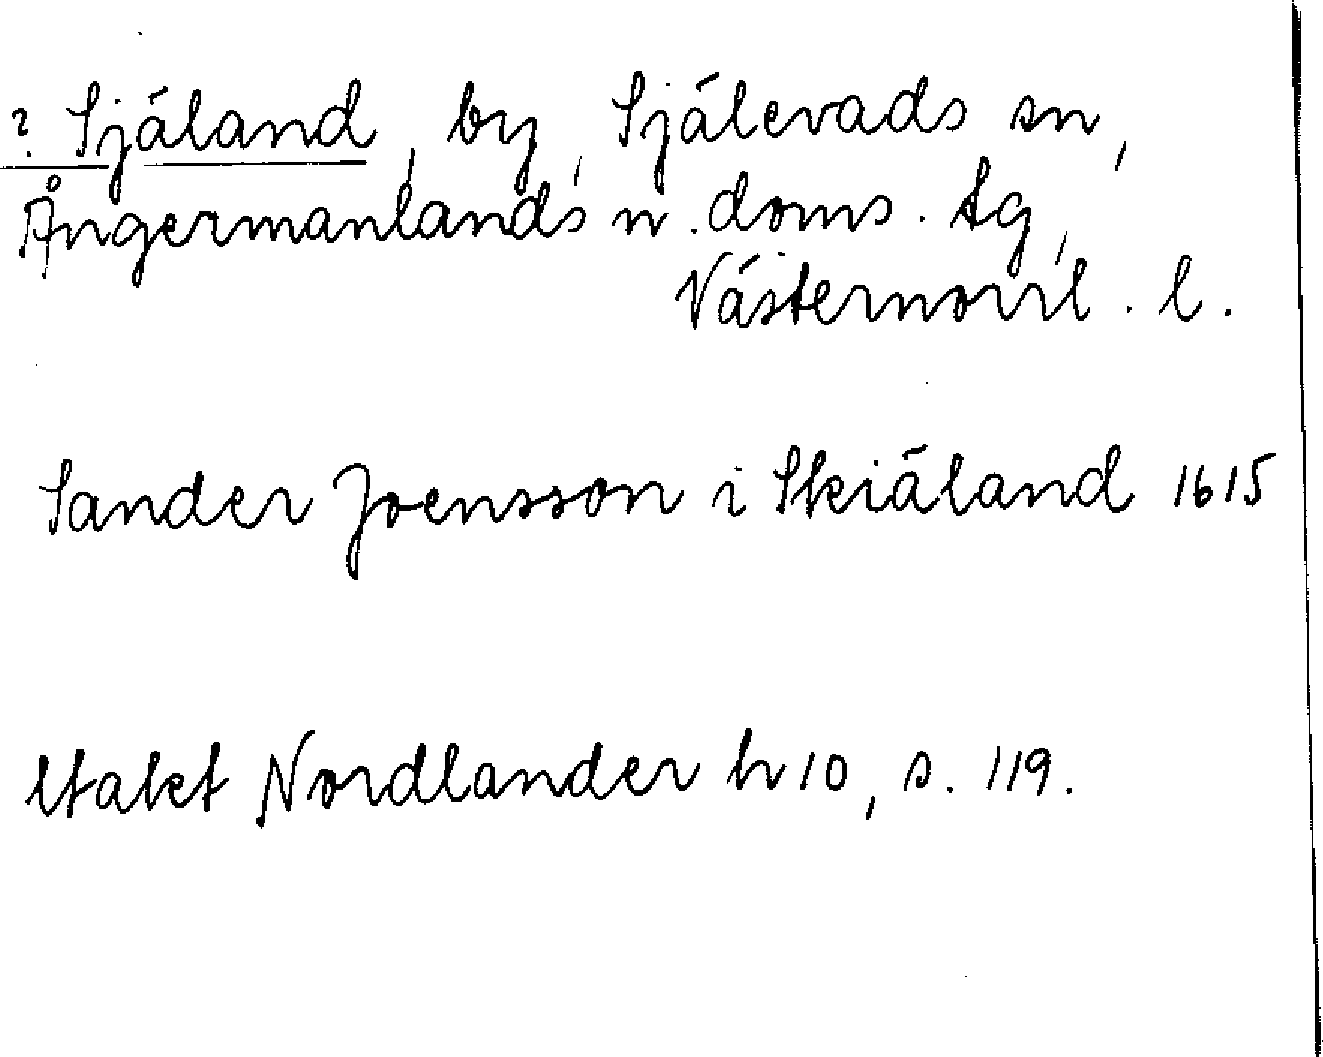 ? Själand, by, Själevads sn,
Ångermanlands n. doms. tg,
Västernorrl. l.
Sander Joensson i Skiäland 1615
Nordlander h 10, s. 119.